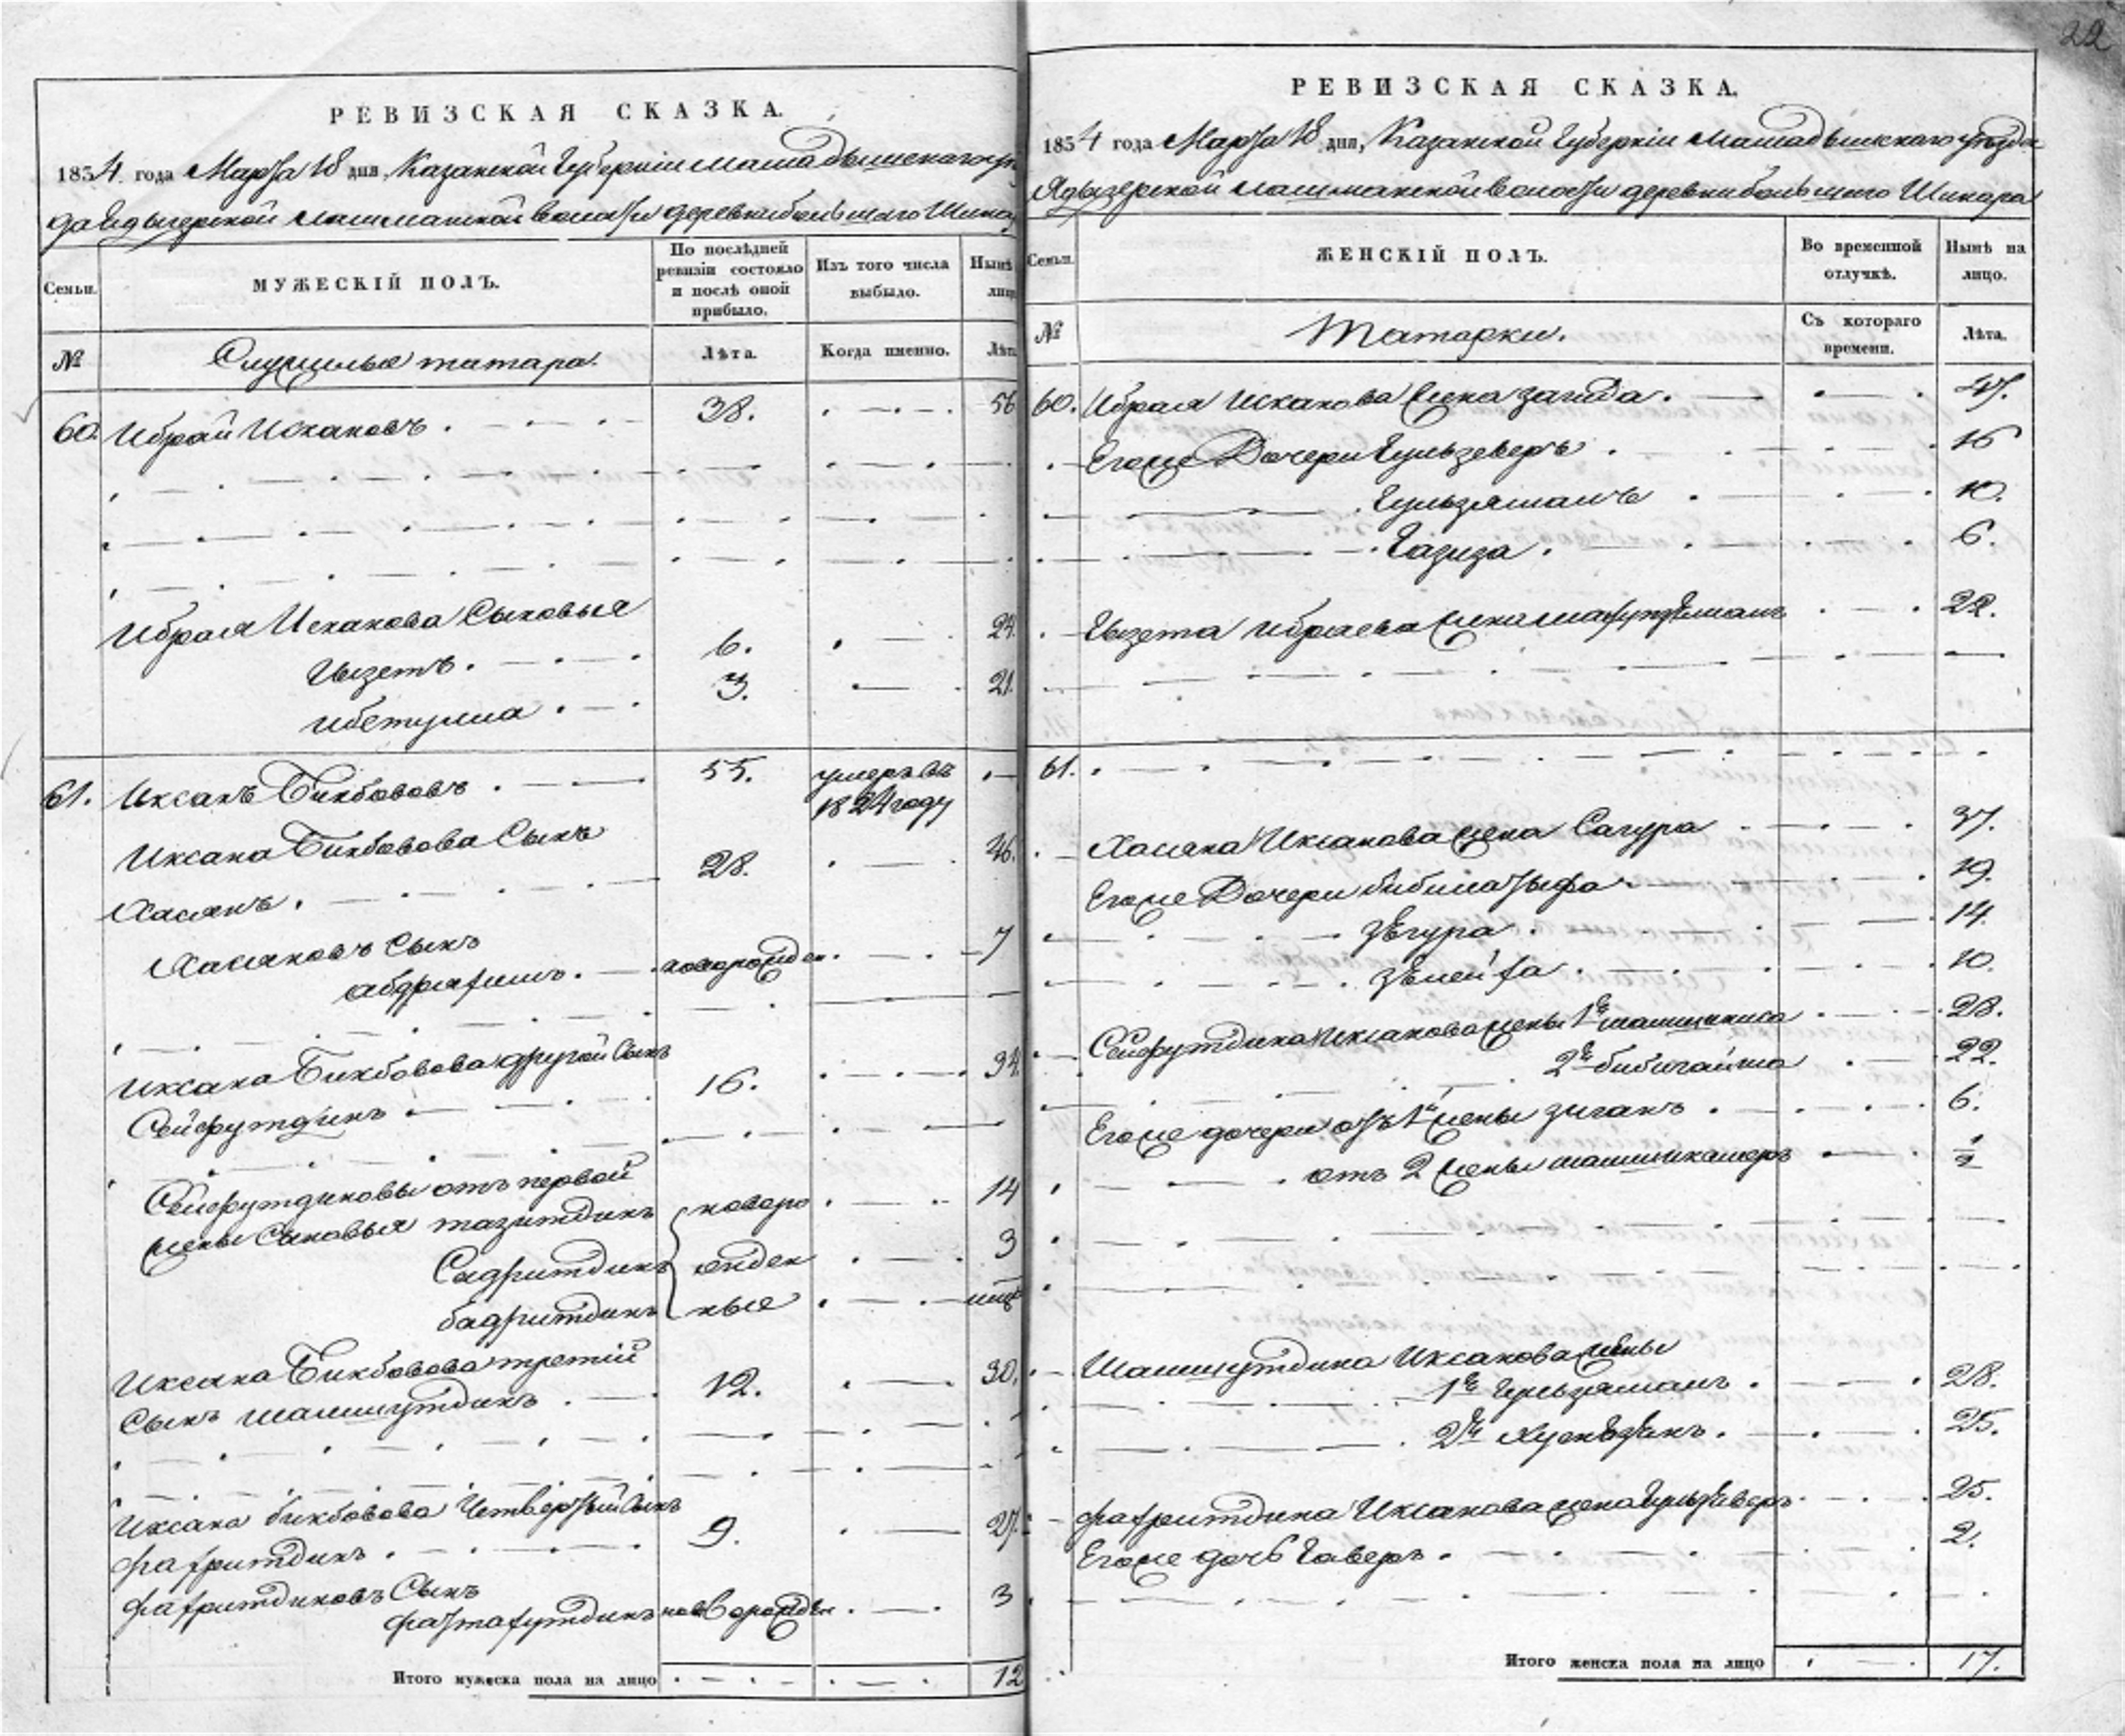 22
РЕВИЗСКАЯ СКАЗКА.
1854 года Марта 18 дня, Казанской Губерніи Мамадышскаго уѣз
да лашманской волости деревни большаго Шинар
Семьи.
МУЖЕСКІЙ ПОЛЪ.
По послѣдней ревизіи состояло и послѣ оной прибыло.
Изъ того числа выбыло.
Нынѣ лицо
№
Служилыя татара.
Лѣта.
Когда именно.
Лѣта
60. Ибрай Искаковъ. 38. 56
Ибрая Искакова Сыновья
Гизетъ. 6. 24.
ибетулла. 3. 21.
61. Иксанъ Бикбововъ. 55. умеръ въ
1824 году
Иксана Бикбовова Сынъ
Хасянъ. 28. 46.
Хасяновъ Сынъ
абдрахимъ. новорожден. 7
Иксана Бикбовова другой Сынъ
Сейфутдинъ 16. 34.
Сейфутдиновы отъ первой
жены Сыновья тазитдинъ новоро 14
Садритдинъ жден 3
бадритдинъ ные
Иксана Бикбовова третій
Сынъ шамшутдинъ. 12. 30.
Иксана бикбовова Четвертый Сынъ
фахритдинъ. 9. 27.
фахритдиновъ Сынъ
фатхутдинъ новорожден. 3
Итого мужеска пола на лицо 12
РЕВИЗСКАЯ СКАЗКА.
1854 года Марта 18 дня, Казанской Губерніи Мамадышскаго уѣзда
лашманской волости деревни большаго Шинара
Семьи.
ЖЕНСКІЙ ПОЛЪ.
Во временной отлучкѣ.
Нынѣ на лицо.
№
Татарки.
Съ котораго времени.
Лѣта.
60. Ибрая Искакова Жена загида. 47.
Егоже Дочери Гульзеверъ. 16
Гульзямалъ. 10.
Газиза. 6.
Гизета Ибраева жена 22.
61.
Хасяна Иксанова жена Сагура 37.
Егоже Дочери бибилатыфа 19.
зѣгура. 14.
зѣлейха. 10.
Сейфутдина Иксанова жены 1я 28.
2я бибигайша 22.
Егоже дочери отъ 1й жены зиганъ. 6.
отъ 2 жены 1/2
Шамшутдина Иксанова жены
1я Гульзямалъ. 28.
2я 25.
фахритдина Иксанова жена Гульзеверъ. 25.
Егоже дочь Гаверъ. 2.
Итого женска пола на лицо 17.